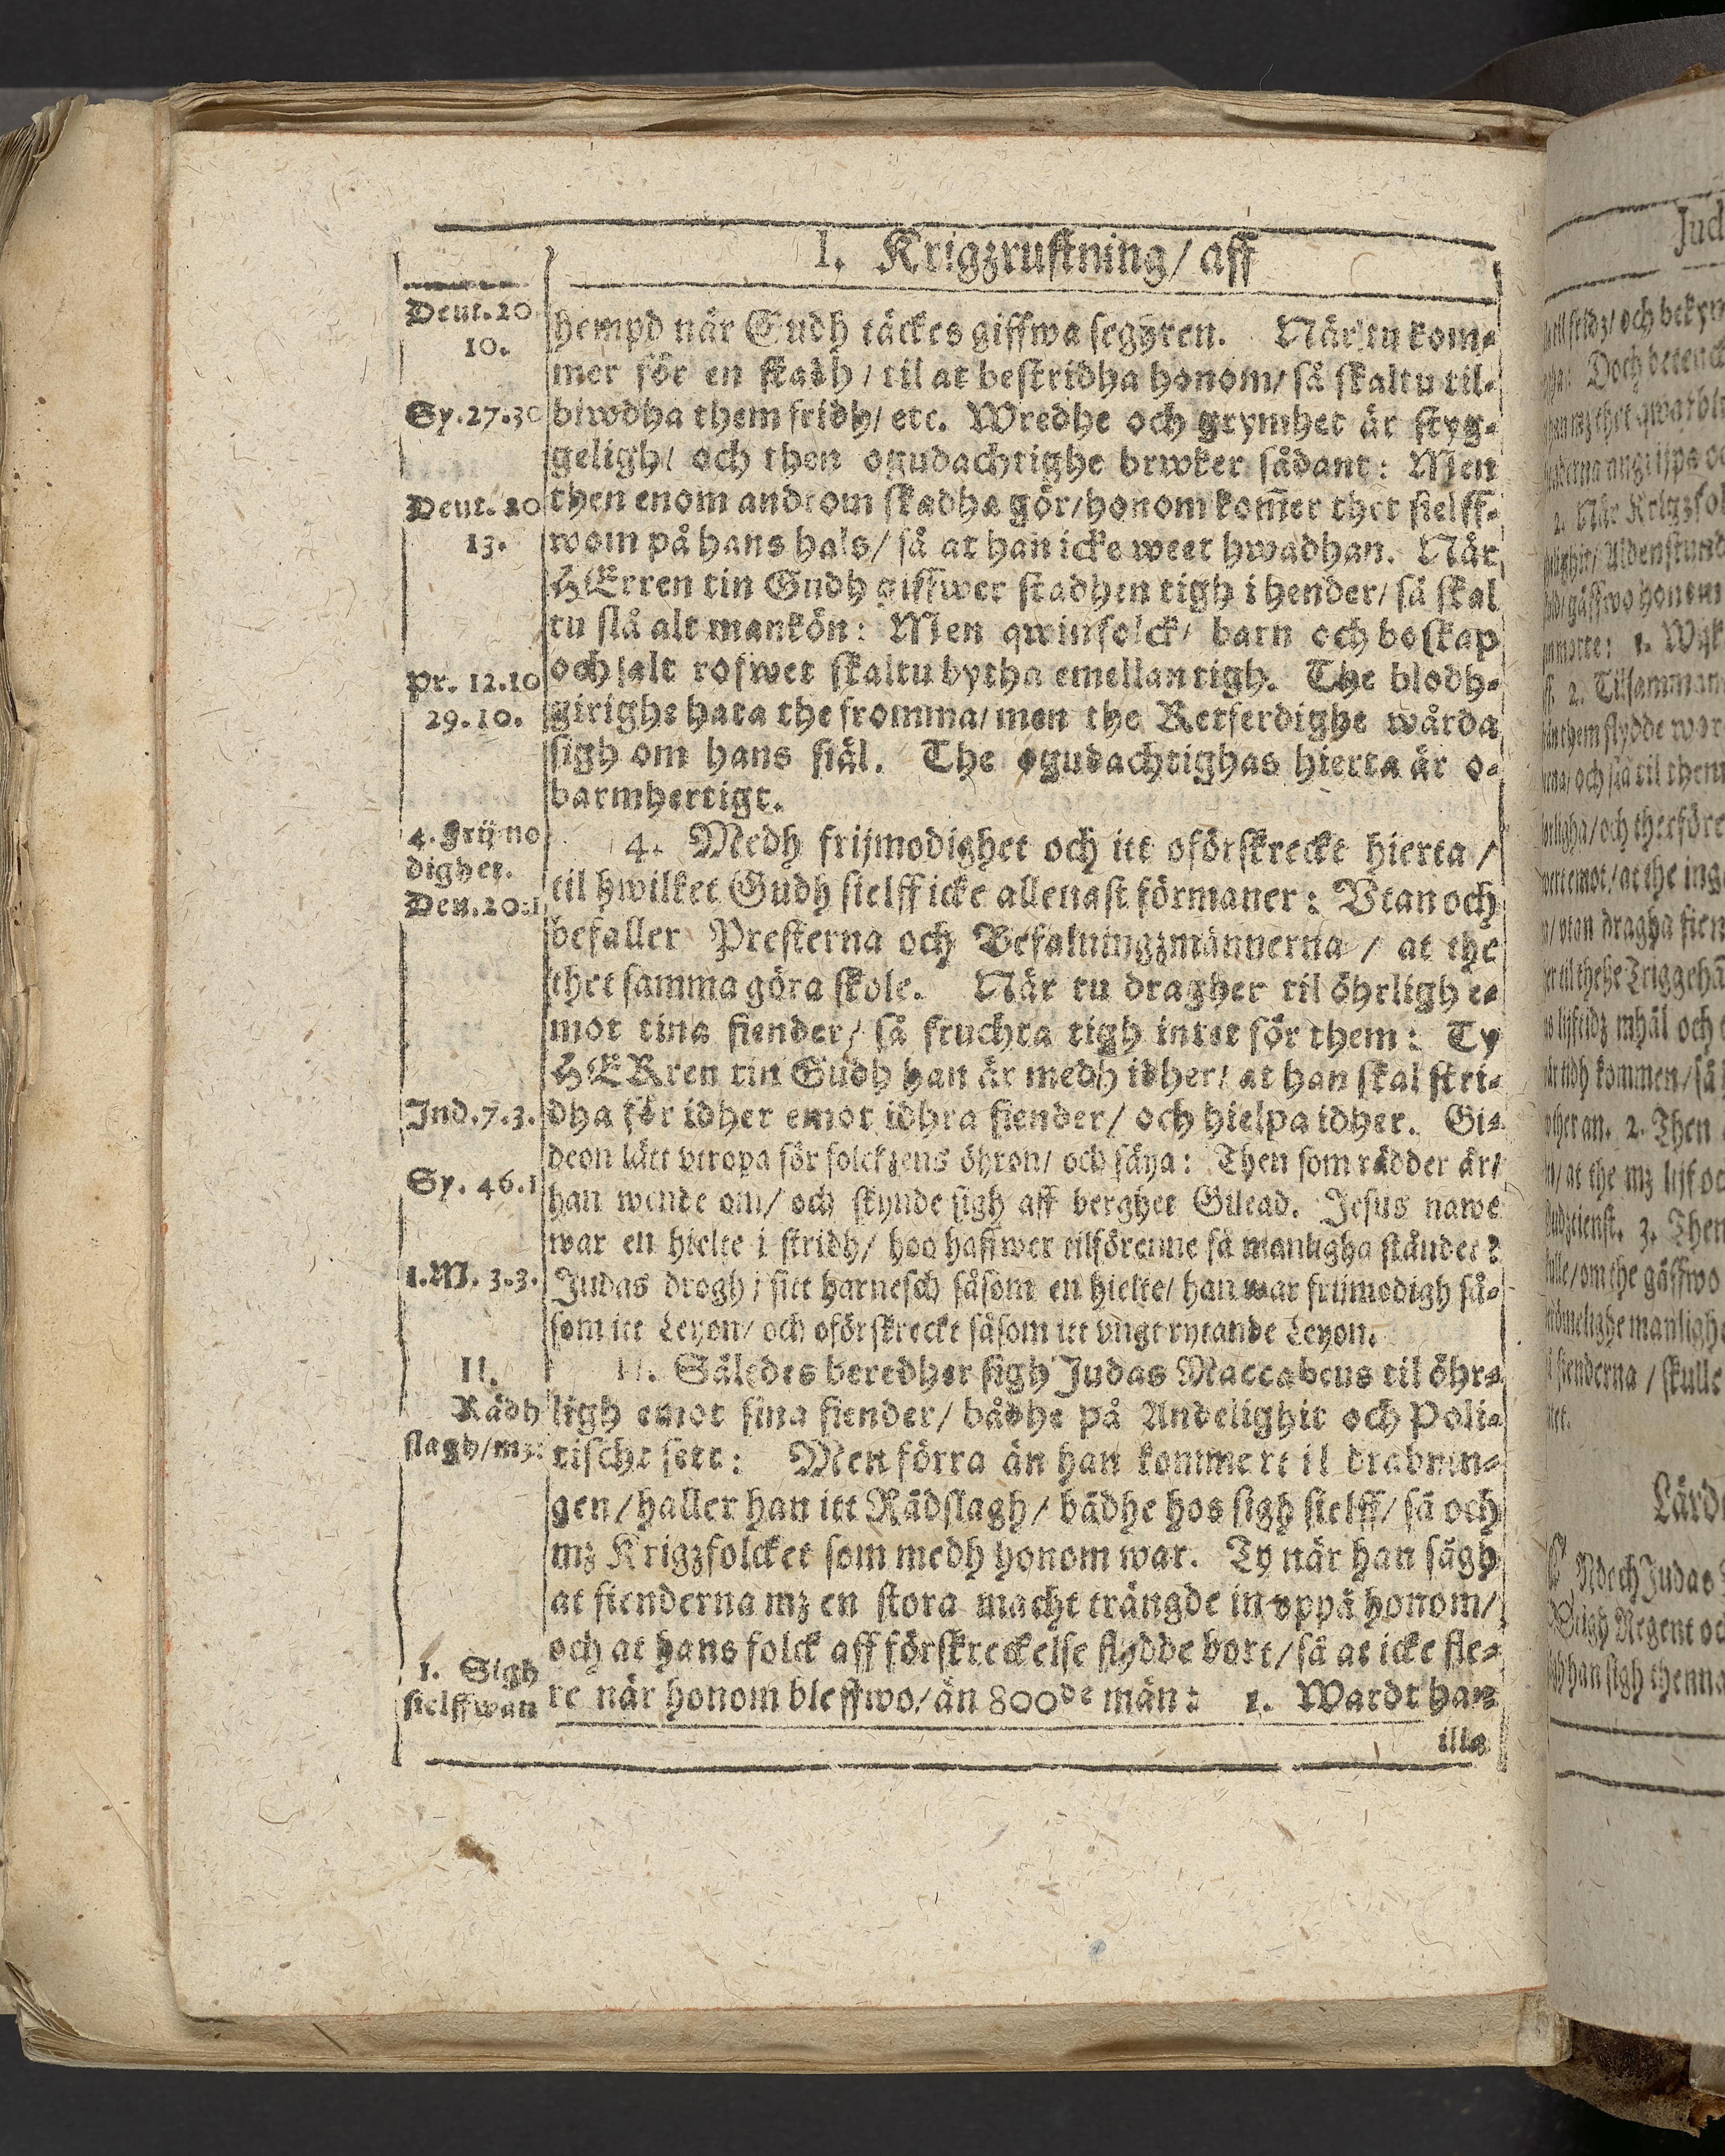 I. Krigzrustning/ aff
Deut. 20
10.
Sy. 27.30
Deut. 20
13.
Pr. 12.10
29.10.
4. Frijmo
digher.
Deu. 20:1
Jud. 7.3.
Sy. 46.1
1.M. 3.3.
II.
Rådh
slagh/mz:
1. Sigh
sielffwan
hempd når Gudh täckes giffwa segyren. När tu kom-
mer för en stadh / til at bestridha honom/ så skaltu til-
biwdha them fridh/ etc. Wredhe och grymhet är styg-
geligh/ och then ogudachtighe brwker sådant: Men
then enom androm skadha gör/ honom kom̃er thet sielff-
wom på hans hals/ så at han icke weet hwadhan. När
HErren tin Gudh giffwer stadhen tigh i hender/ så skal
tu slå alt mankön: Men qwinfolck/ barn och boskap
och alt rofwet skaltu bytha emellan tigh. The blodh-
girighe hata the fromma/ men the Retferdighe wårda
sigh om hans siäl. The ogudachtighas hierta är o-
barmhertigt.
4. Medh frijmodighet och itt oförskreckt hierta /
til hwilket Gudh sielff icke allenast förmaner: Vtan och
befaller Presterna och Befalningzmännerna / at the
thet samma göra skole. När tu dragher til öhrligh e-
mot tina fiender/ så fruchta tigh intet för them: Ty
HERren tin Gudh han är medh idher/ at han skal stri-
dha för idher emot idhra fiender/ och hielpa idher. Gi-
deon lätt vtropa för folckzens öhron/ och säya: Then som rädder är/
han wende om/ och skynde sigh aff berghet Gilead. Jesus nawe
war en hielte i stridh/ hoo haffwer tilförenne så manligha ståndet?
Judas drogh i sitt harnesch såsom en hielte/ han war frijmodigh så-
som itt Leyon/ och oförskreckt såsom itt vngt rytande Leyon.
II. Således beredher sigh Judas Maccabeus til öhr-
ligh emot sina fiender/ bådhe på Andelighit och Poli-
tischt sett: Men förra än han kommer til drabnin-
gen/ haller han itt Rådslagh/ bådhe hos sigh sielff/ så och
mz Krigzfolcket som medh honom war. Ty när han sågh
at fienderna mz en stora macht trängde in vppå honom/
och at hans folck aff förskreckelse flydde bort/ så at icke fle-
re när honom bleffwo/ än 800de män: 1. Wardt han
illa